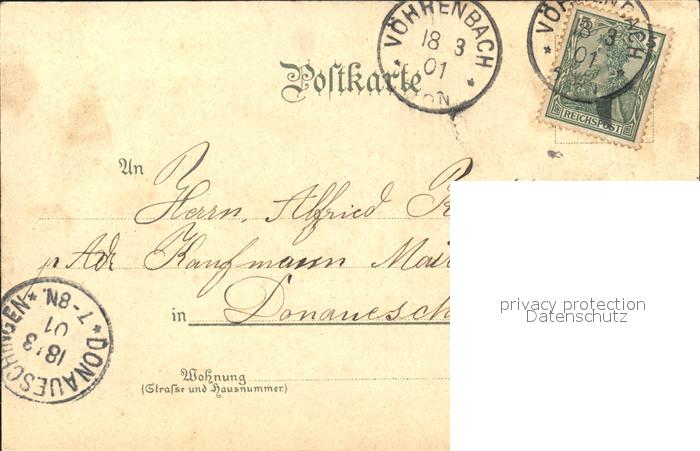 VÖHRENBACH
18 3
01
VÖHRENBACH
18 3
01
REICHSPOST
Postkarte
An
Herrn, Alfried
p Adr Kaufmann
in Donauesch
Wohnung
(Straße und Hausnummer.)
DONAUESCHINGEN
18 3
01
7-8N.
privacy protection
Datenschutz